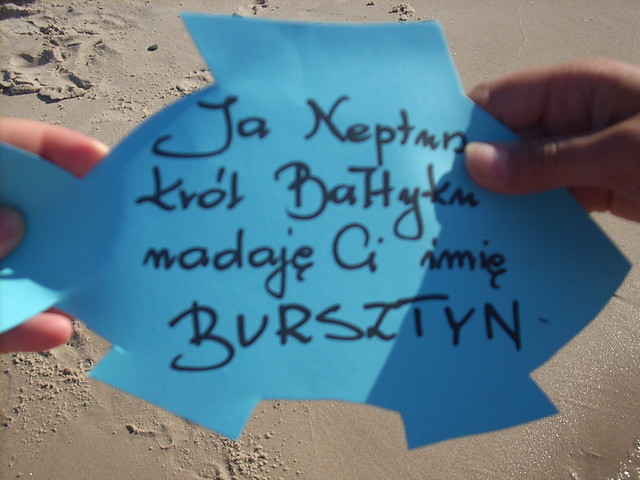 Ja Neptun
król Bałtyku
nadaję Ci imię
BURSZTYN